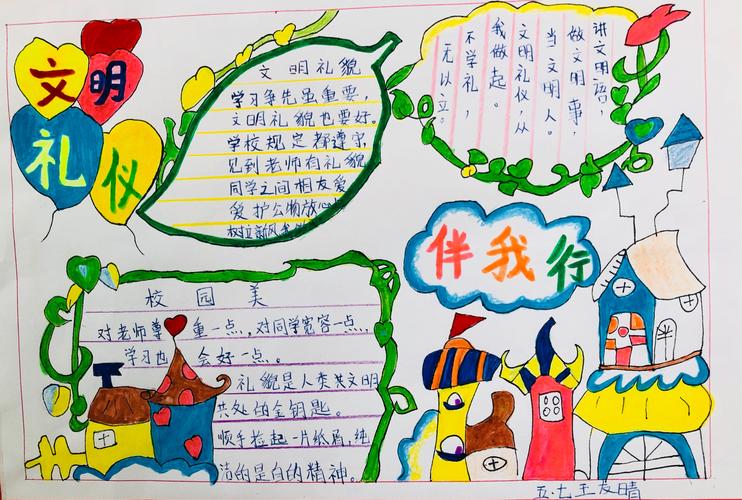 文明
礼仪
文明礼貌
学习争先虽重要,
文明礼貌也要好。
学校规定都遵守,
见到老师有礼貌
同学之间相友爱
爱护公物放心
树立新风我
讲文明语,
做文明事,
当文明人。
文明礼仪,从
我做起。
不学礼,
无以立。
伴我行
校园美
对老师尊重一点,对同学宽容一点,
学习也会好一点。
礼貌是人类共文明
共处的金钥匙。
顺手捡起一片纸屑,纯
洁的是自的精神。
五.七王友晴